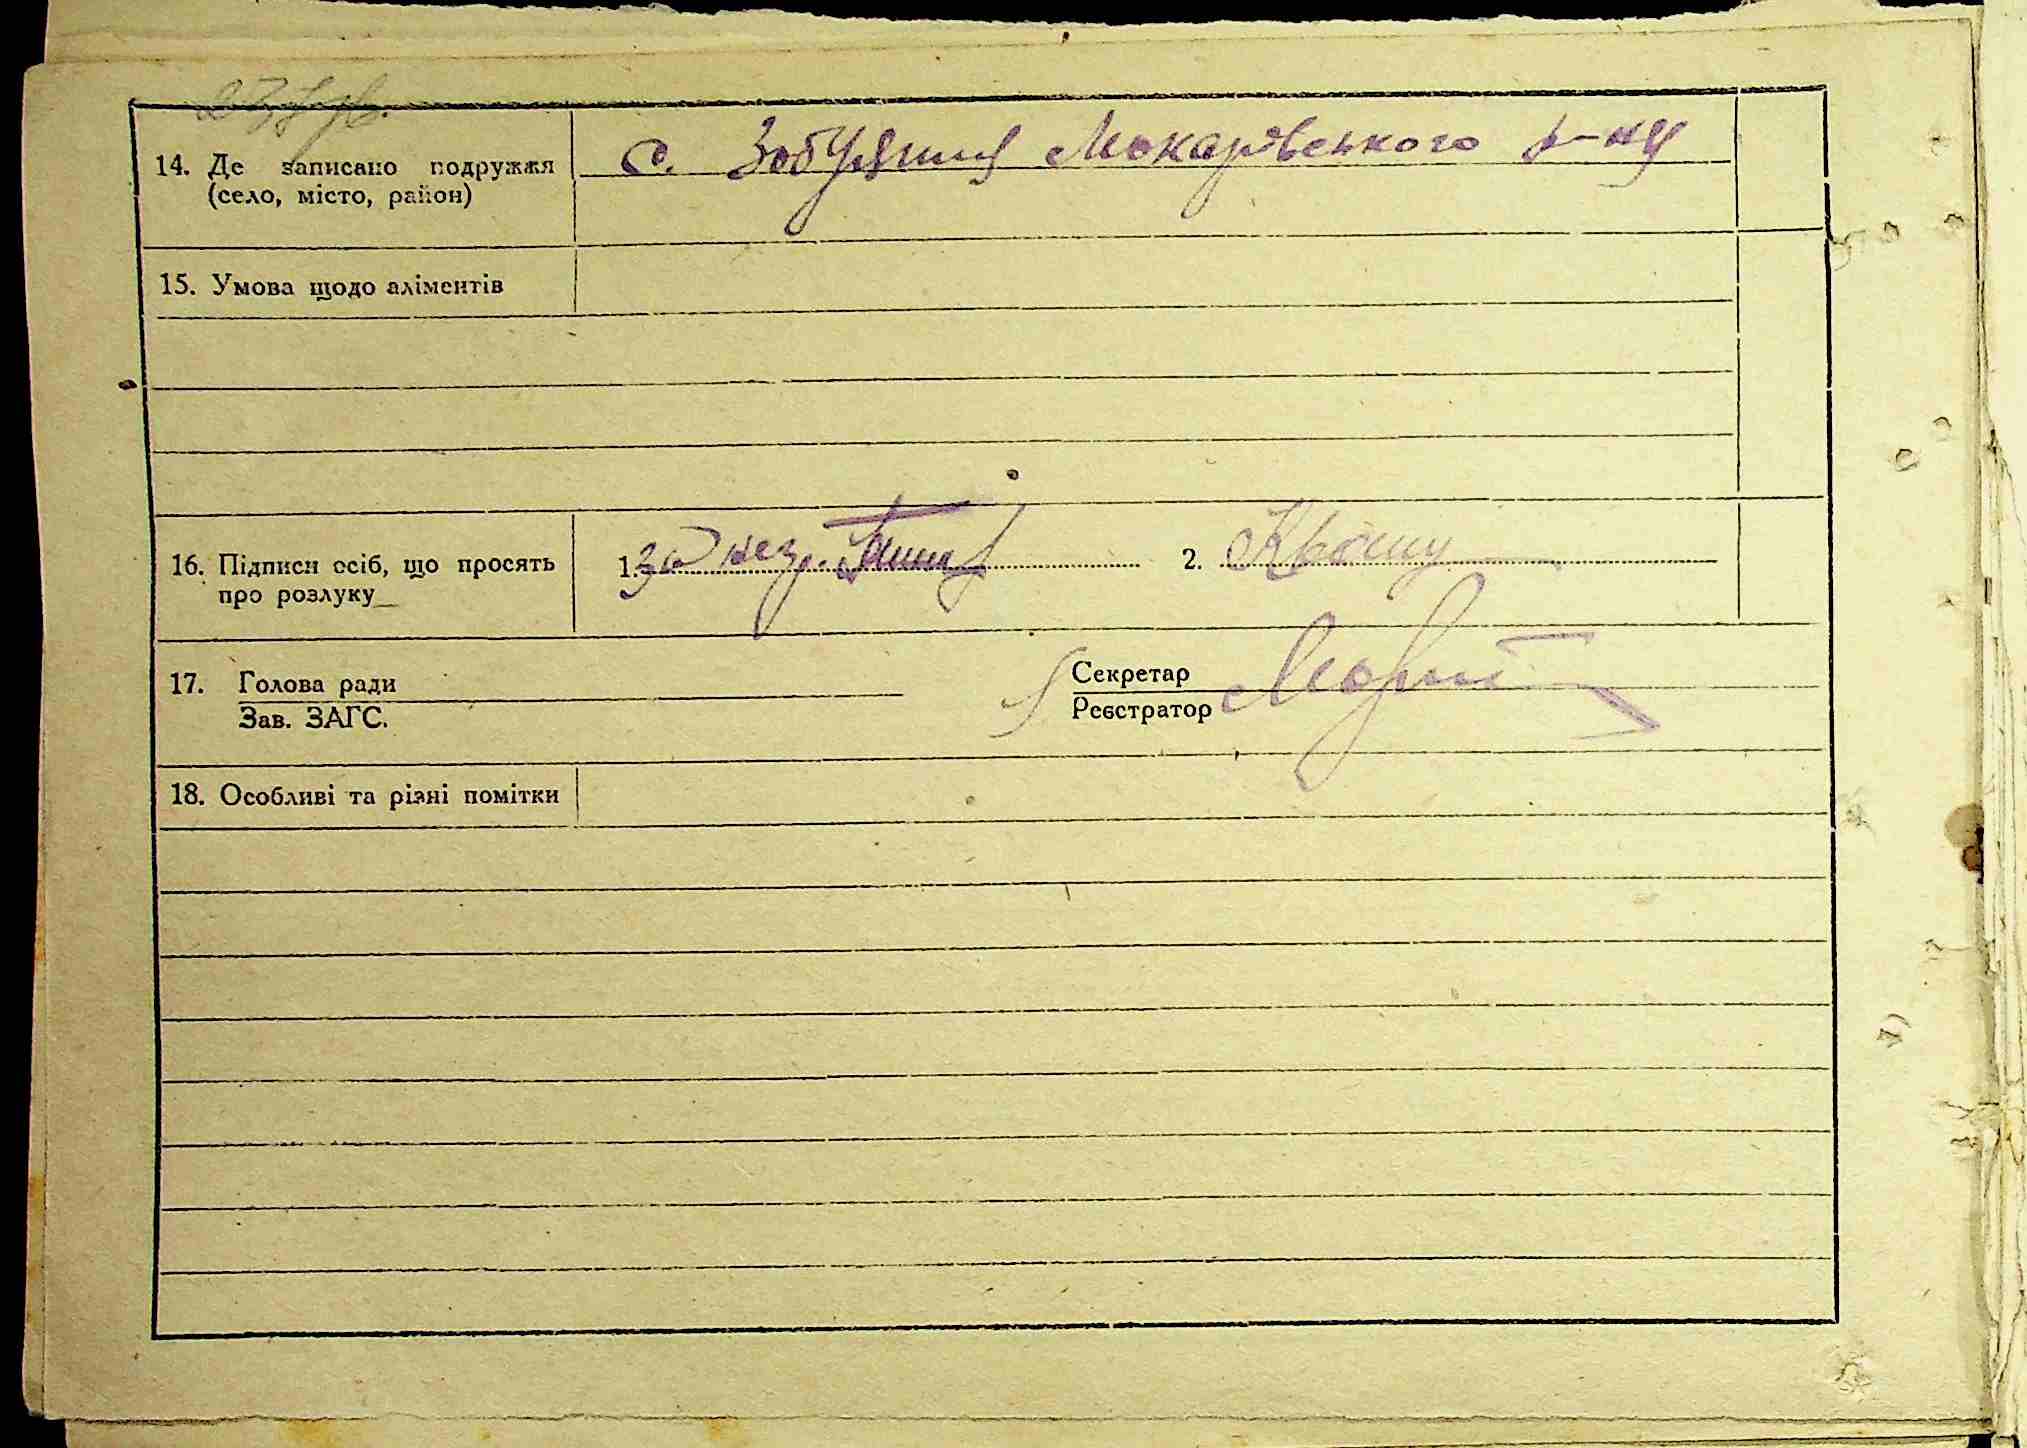 14. Де записано подружжя
(село, місто, район)
с. Мокарівського р-ну
15. Умова щодо аліментів
16. Підписи осіб, що просять
про розлуку
1. за 2.
17. Голова ради
Зав. ЗАГС.
Секретар
Реєстратор
18. Особливі та різні помітки